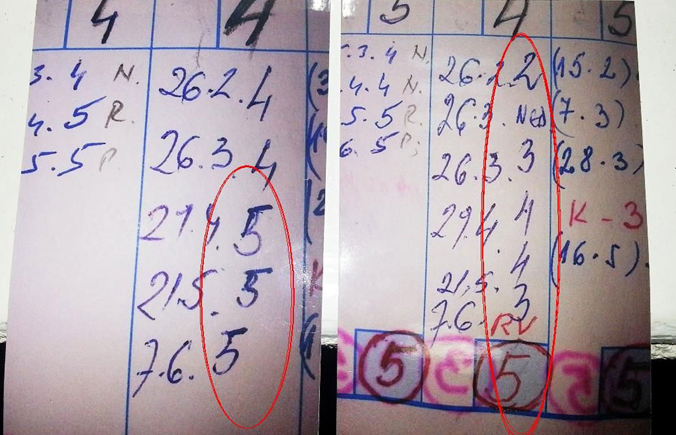 4 4
3.4 N. 26.2.4
4.5 R. 26.3.4
5.5 27.4.5
21.5.5
7.6.5
5 4 5
3.4 N. 26.2.2 (15.2).
4.4 N. 26.3. (7.3)
5.5 R. 26.3.3 (28.3)
6.5 29.4.4 K - 3
21.5.4 (16.5).
7.6.3
RV
5 5 5 5 5